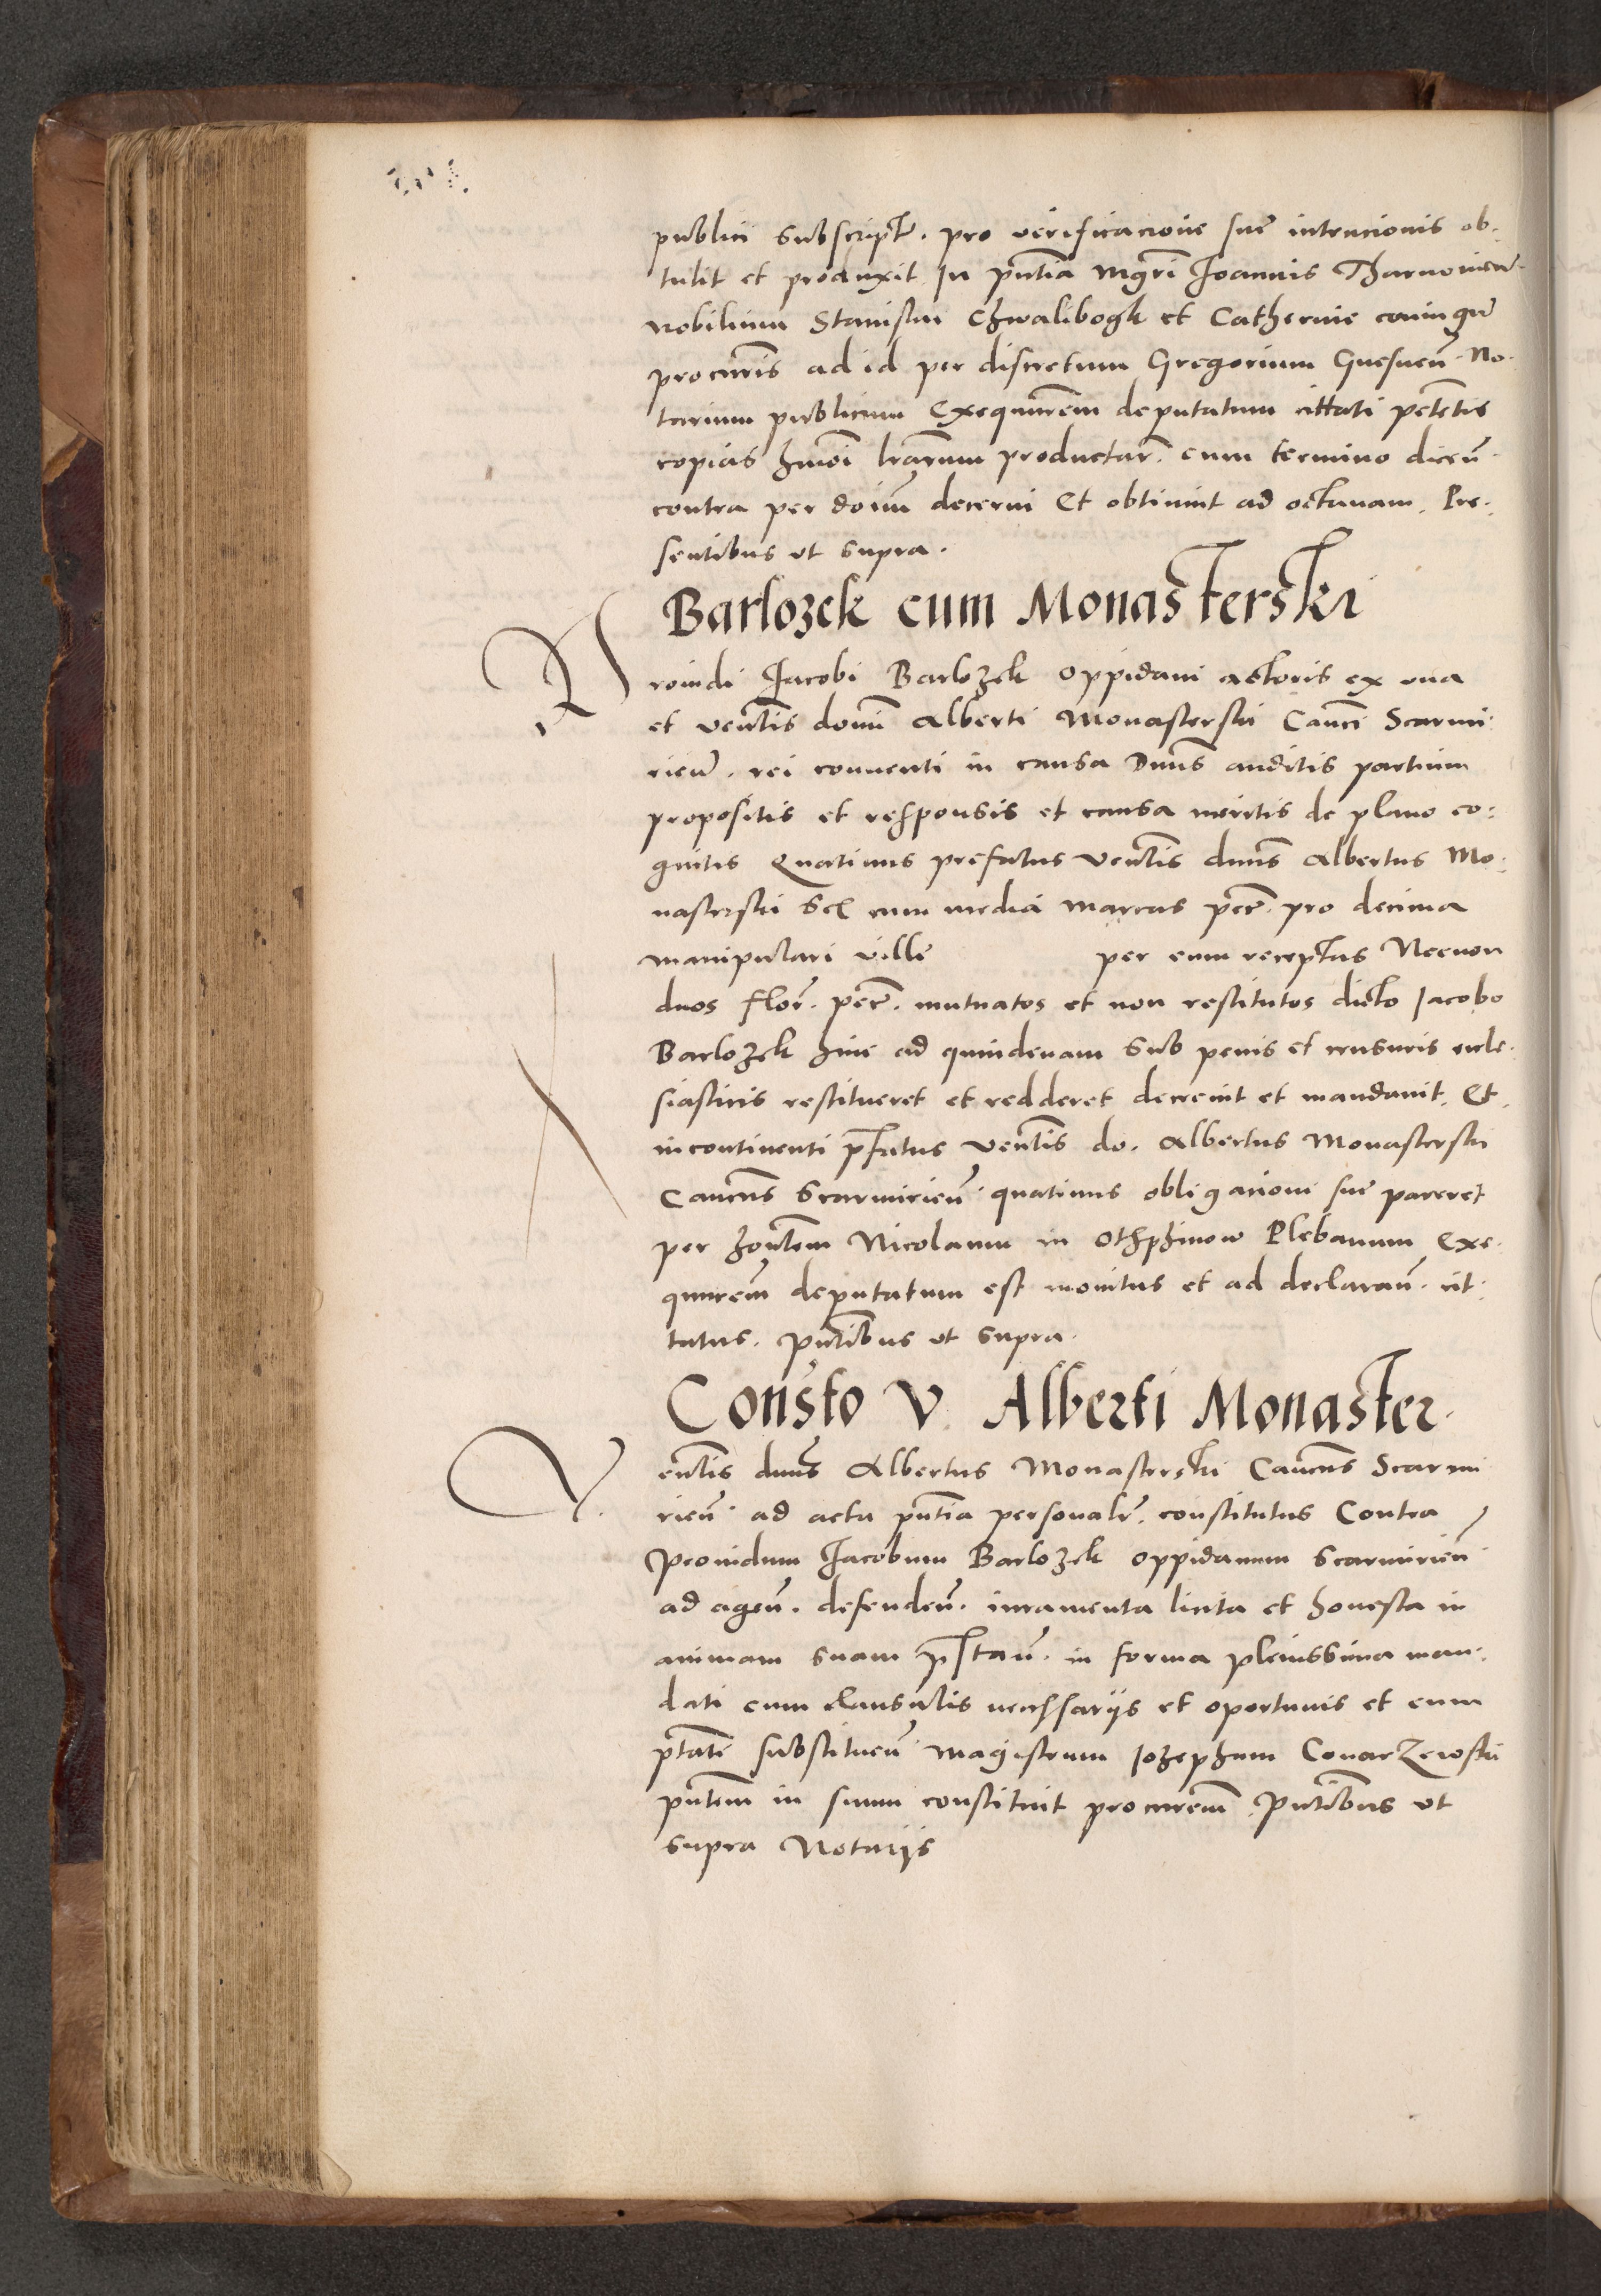 publici subscript. pro verificacione sue intencionis ob-
tulit et produxit In pntia mgri Joannis Tharnovien.
nobilium Stanislai Chwalibogk et Catherine coniugu
procuris ad id per discretum Gregorium Gnesnen. No-
tarium publicum Exequutrem deputatum cittati petetis
copias hmoi lrarum productar. cum termino dicen.
contra per doim decerni Et obtinuit ad octavam. Pre-
sentibus ut supra.
Barlozek cum Monasterski
Providi Jacobi Barlozek oppidani actoris ex una
et venlis domi Alberti Monasterski Canci Scarmi-
rien. rei conventi in causa Dnus auditis partium
propositis et responsis et causa meritis de plano co-
gnitis Quatinus prefatus venlis dnus Albertus Mo-
nasterski Sex cum media marcas pec. pro decima
manipulari ville per eum receptas Necnon
duos flor. pec. mutuatos et non restitutos dicto Jacobo
Barlozek hinc ad quindenam sub penis et censuris eccle-
siasticis restitueret et redderet decrevit et mandavit. Et
incontinenti pfatus venlis do. Albertus Monasterski
Cancus Scarmirien. quatinus obligacioni sue pareret
per hontem Nicolaum in Othphinow Plebanum Exe-
quurem deputatum est monitus et ad declaran. cit-
tatus. pntibus ut supra.
Consto V. Alberti Monaster.
Venlis dnus Albertus Monasterski Cancus Scarmi
rien. ad acta pntia personalr. constitutus Contra
Providum Jacobum Barlozek oppidanum Scarmirien
ad agen. defenden. iuramenta licita et honesta in
animam suam pstan. in forma plenissima man-
dati cum clausulis necessariis et oportunis et cum
ptate substituen. magistrum Jozephum Conarzewski
pntem in suum constituit procurem. Pntibus ut
supra Notariis